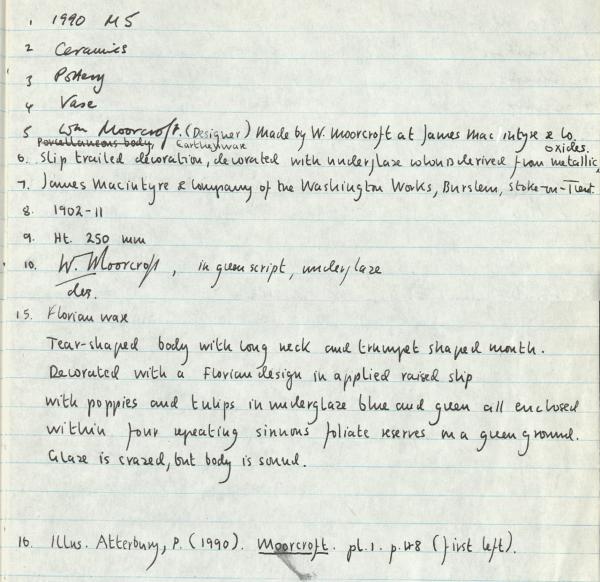 1 1990 M5
2 Ceramics
3 Pottery
4 Vase
5 Wm Moorcroft. (Designer) Made by W. Moorcroft at James Macintyre & Co.
Porcellaneous body, Earthenware oxides.
6. Slip trailed decoration, decorated with underglaze colours derived from metallic
7. James Macintyre & Company of the Washington Works, Burslem, Stoke-on-Trent.
8. 1902-11
9. Ht. 250 mm
10. W. Moorcroft, in green script, underglaze
des.
15. Florian ware
Tear-shaped body with long neck and trumpet shaped mouth.
Decorated with a Florian design in applied raised slip
with poppies and tulips in underglaze blue and green all enclosed
within four repeating sinuous foliate reserves on a green ground.
Glaze is crazed, but body is sound.
16. Illus. Atterbury, P. (1990). Moorcroft. pl.1. p.48 (first left).